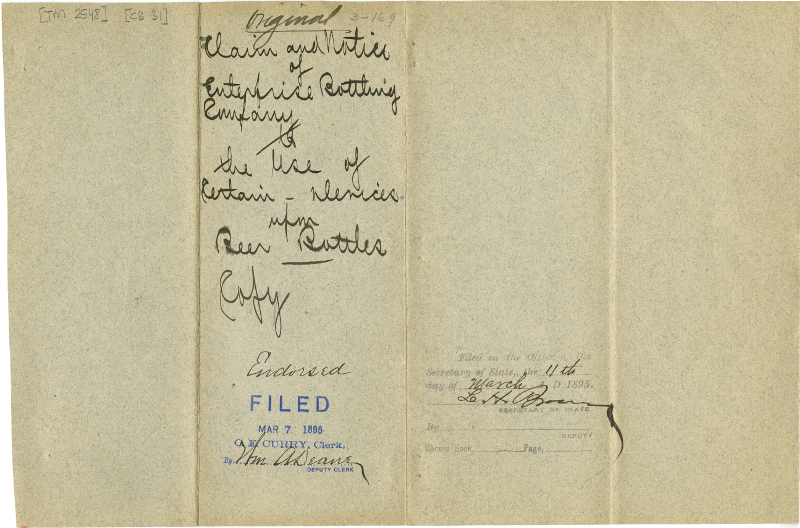 [TM 2548] [CB 31]
Original 3-169
Claim and Notice
of
Enterprise Bottling
Company
to
the Use of
Certain - Devices
upon
Beer Bottles
Copy
Endorsed
FILED
MAR 7 1895
C. F. CURRY, Clerk,
By Wm. A Deane
DEPUTY CLERK
Filed in the Office of the
Secretary of State, the 11th
day of March A. D. 1895.
L. H. Brown
SECRETARY OF STATE
By
DEPUTY
Record Book, Page,